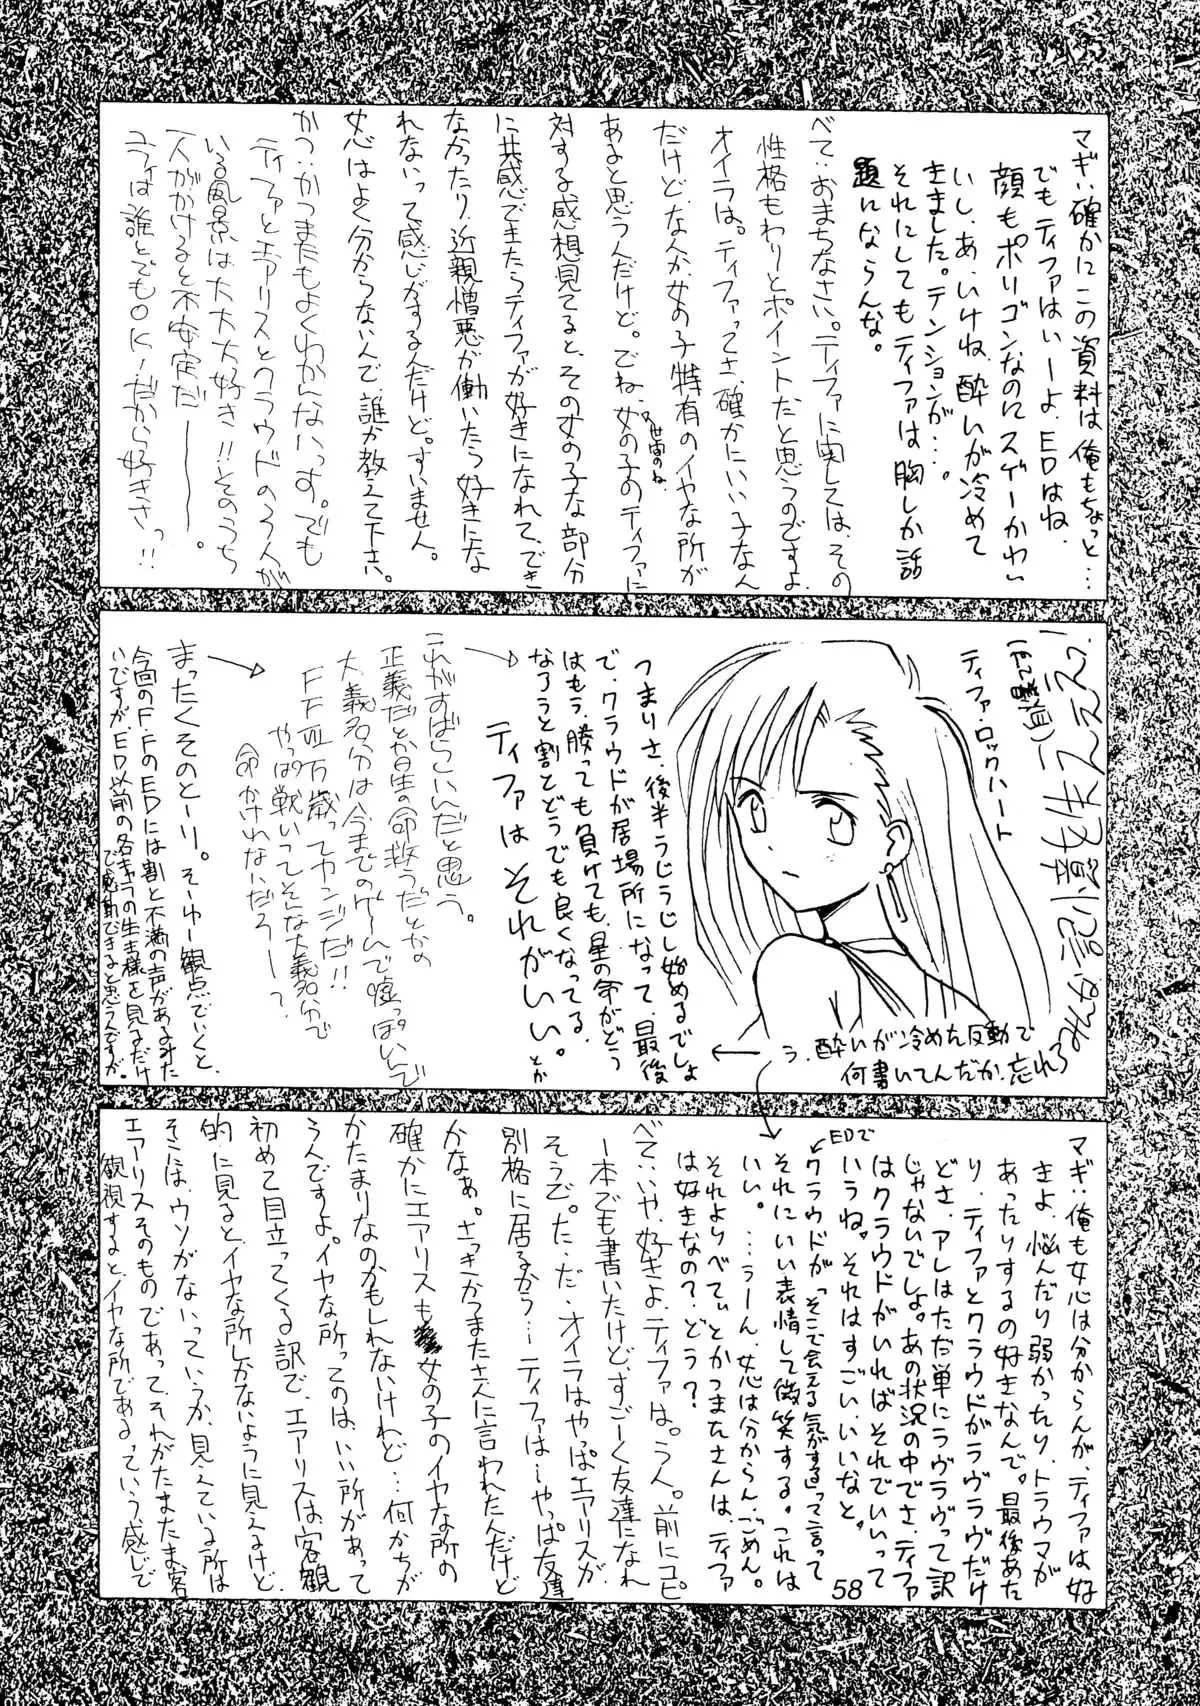 マギ:確かにこの資料は俺もちょっと…
でもティファはいーよ、EDはね
顔もポリゴンなのにスゲーかわい
いし、あ、いけね、酔いが冷めて
きました。テンションが…。
それにしてもティファは胸しか話
題にならんな。
べて:おまちなさい。ティファに関しては、その
性格もわりとポイントだと思うのですよ
オイラは。ティファってさ、確かにいい子なん
だけど、な人か、女の子特有のイヤな所が
あると思うんだけど。でね、女の子のティファに
世間のね
対する感想見てると、その女の子な部分
に共感できたらティファが好きになれて、でき
なかったり、近親憎悪が働いたら好きにな
れないって感じがするんだけど。すいません。
女心はよく分からない人で、誰か教えて下さい。
かつ:かつまたもよくわかんないっす。でも
ティファとエアリスとクラウドの3人が
いる風景は大大大好き!!そのうち
一人がかけると不安定だ―――。
ユフィは誰とでもOK!だから好きさっ!!
ティファ・ロックハート
ラ、酔いが冷めた反動で
何書いてんだか、忘れろ
つまりさ、後半うじうじし始めるでしょ
で、クラウドが居場所になって、最後
はもう、勝っても負けても、星の命がどう
なろうと割とどうでも良くなってる。
ティファはそれがいい。とか
これがすばらこいんだと思う。
正義だとか星の命救うだとかの
大義名分は今までのゲームで嘘っぽいんで
FFⅦ万歳ってカンジだ!!
やっぱ戦いってそな大義名分で
命かけれないだろー?
まったくそのとーり。そーゆー観点でいくと、
今回のF.FのEDには割と不満の声があるみた
いですが、ED以前の各キャラの生き様を見るだけ
で感動できると思うんですが。
マギ:俺も女心は分からんが、ティファは好
きよ、悩んだり弱かったり、トラウマが
あったりするの好きなんで。最後あた
り、ティファとクラウドがラヴラヴだけ
どさ、アレはただ単にラヴラヴって訳
じゃないでしょ。あの状況の中でさ、ティファ
はクラウドがいればそれでいいって
いうね。それはすごいいいなと。
EDで
クラウドが「そこで会える気がする」って言って
それにいい表情して微笑する。これは
いい。…うーん、女心は分からん、ごめん。
それよりべてぃとかつまたさんは、ティファ
は好きなの?、どう?
べて:いや、好きよ、ティファは。う人。前にコピ
一本でも書いたけど、すごーく友達になれ
そうで。た、だ、オイラはやっぱエアリスが
別格に居るから…。ティファは…やっぱ友達
かなぁ。さっきかつまたさんに言われたんだけど
確かにエアリスも女の子のイヤな所の
かたまりなのかもしれないけれど…何かちが
う人ですよ。イヤな所ってのは、いい所があって
初めて目立ってくる訳で、エアリスは客観
的に見ると、イヤな所しかないように見えるけど、
そこには、ウソがないっていうか、見えている所は
エアリスそのものであって、それがたまたま客
観視するとイヤな所であるっていう感じで
58